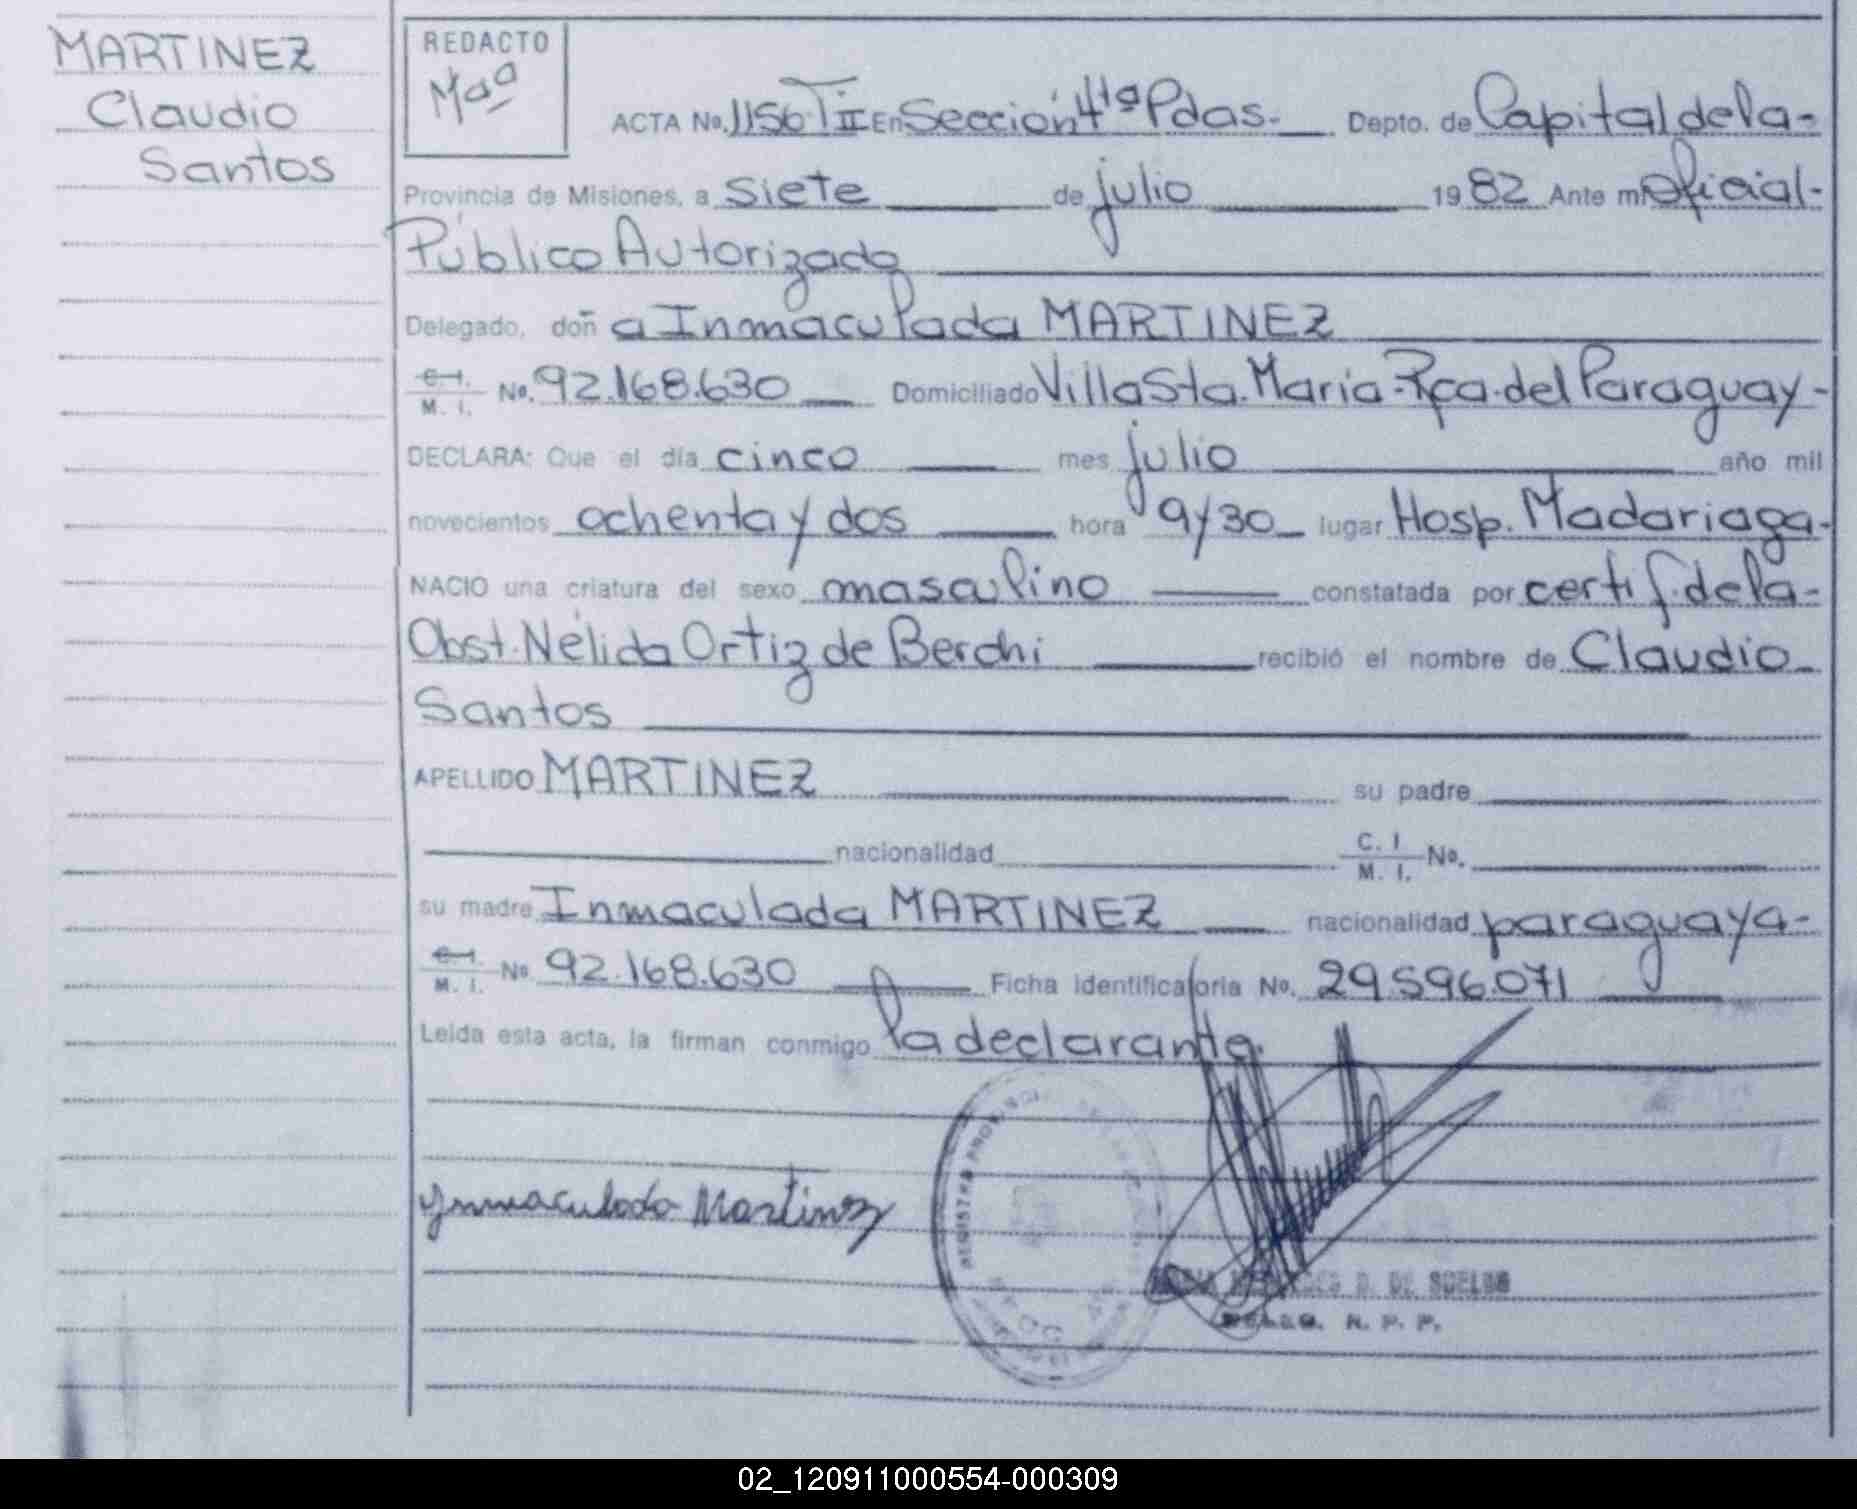 MARTINEZ
Claudio
Santos
REDACTO
Mªª
ACTA No. 1156 T II En Sección 4ta Pdas. Depto. de Capital de la-
Provincia de Misiones, a siete de julio 1982 Ante mi Oficial-
Público Autorizado
Delegado, doña Inmaculada MARTINEZ
C.I. M. I. No. 92.168.630 Domiciliado Villa Sta. Maria-Rca. del Paraguay-
DECLARA: Que el día cinco mes julio año mil
novecientos ochenta y dos hora 9y30 lugar Hosp. Madariaga-
NACIO una criatura del sexo masculino constatada por certif. de la-
Obst. Nélida Ortiz de Berchi recibió el nombre de Claudio
Santos
APELLIDO MARTINEZ su padre
nacionalidad C. I M. I. No.
su madre Inmaculada MARTINEZ nacionalidad paraguaya-
C.I. M. I. No 92.168.630 Ficha identificatoria No. 29.596.071
Leída esta acta, la firman conmigo la declarante.
Ynmaculada Martinez
D. DE
R. P. P.
02_120911000554-000309